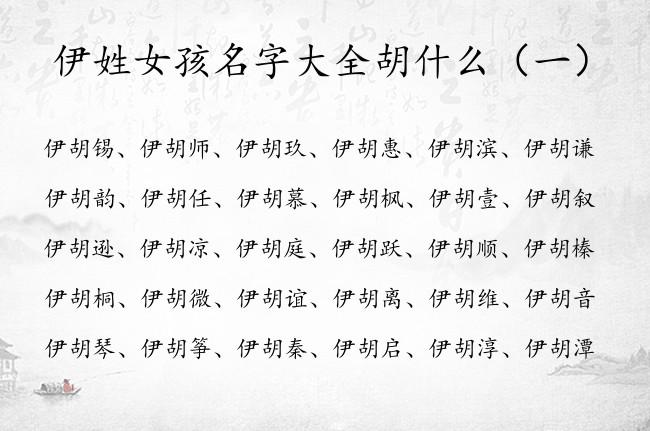 伊姓女孩名字大全胡什么（一）
伊胡锡、伊胡师、伊胡玖、伊胡惠、伊胡滨、伊胡谦
伊胡韵、伊胡任、伊胡慕、伊胡枫、伊胡壹、伊胡叙
伊胡逊、伊胡凉、伊胡庭、伊胡跃、伊胡顺、伊胡榛
伊胡桐、伊胡微、伊胡谊、伊胡离、伊胡维、伊胡音
伊胡琴、伊胡筝、伊胡秦、伊胡启、伊胡淳、伊胡潭